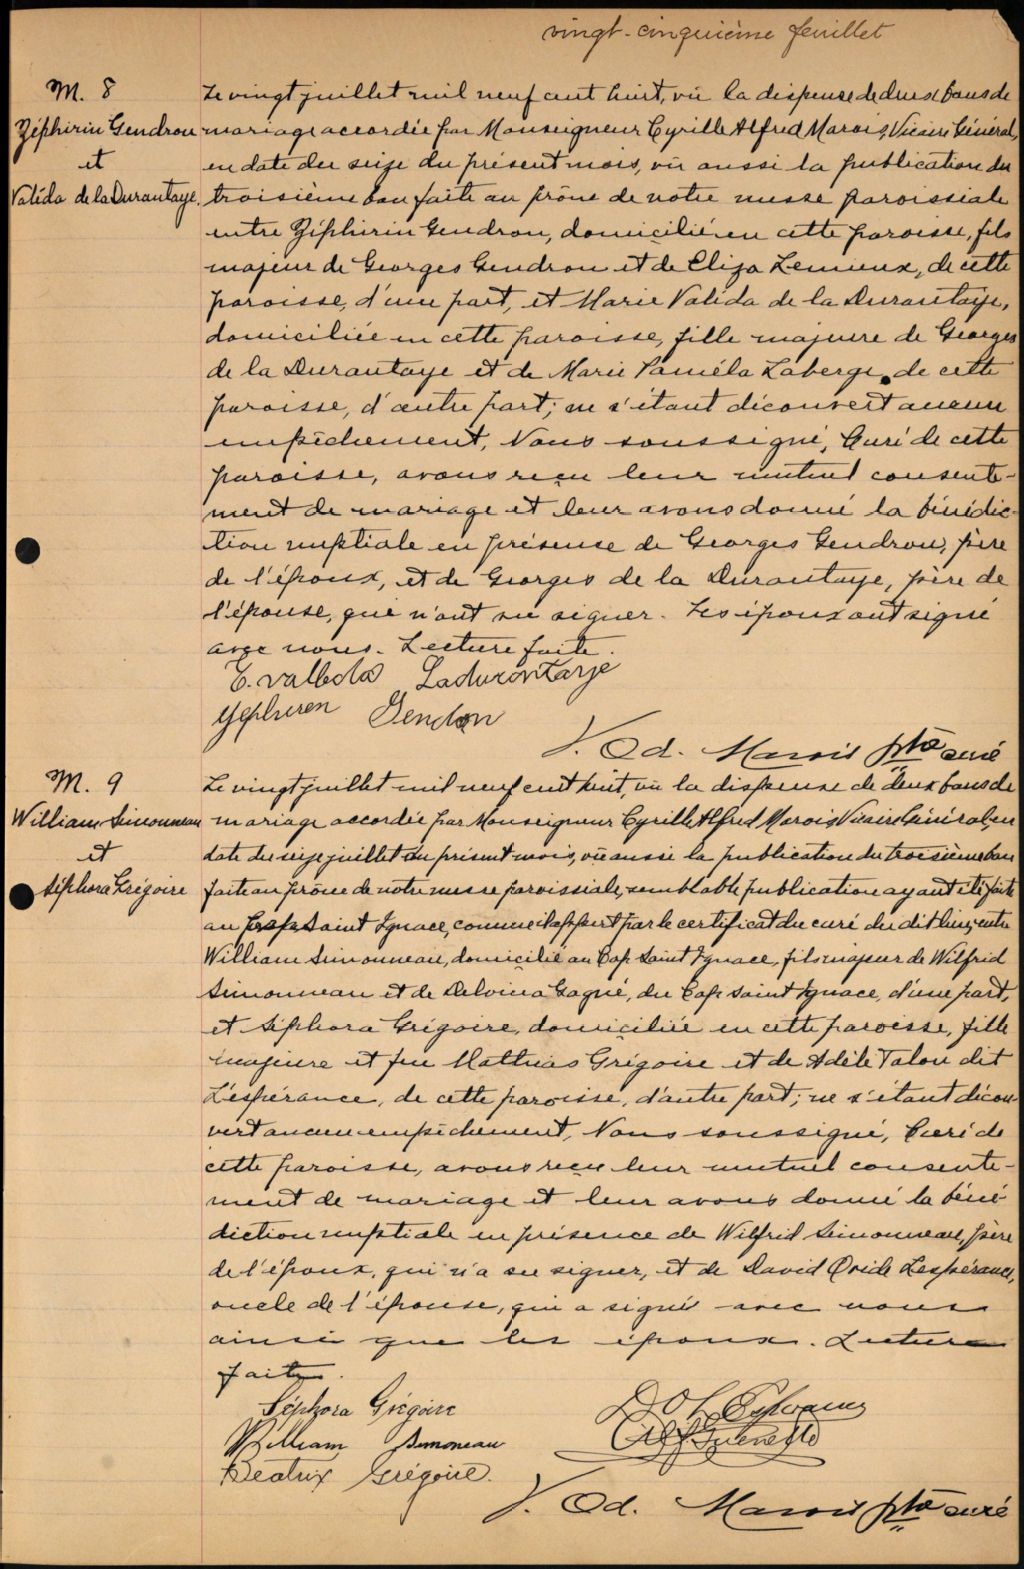 vingt-cinquième feuillet
M. 8
Zéphirin Gendron
et
Valéda de la Durantaye.
Le vingt juillet mil neuf cent huit, vu la dispense de deux bans de
mariage accordée par Monseigneur Cyrille Alfred Marois, Vicaire Général,
en date du seize du présent mois, vu aussi la publication du
troisième ban faite au prône de notre messe paroissiale
entre Zéphirin Gendron, domicilié en cette paroisse, fils
majeur de Georges Gendron et de Eliza Lemieux, de cette
paroisse, d'une part, et Marie Valéda de la Durantaye,
domiciliée en cette paroisse, fille majeure de Georges
de la Durantaye et de Marie Paméla Laberge de cette
paroisse, d'autre part; ne s'étant découvert aucun
empêchement, Nous soussigné, Curé de cette
paroisse, avons reçu leur mutuel consente-
ment de mariage et leur avons donné la bénédic-
tion nuptiale en présense de Georges Gendron, père
de l'époux, et de Georges de la Durantaye, père de
l'épouse, qui n'ont su signer. Les époux ont signé
avec nous. Lecture faite.
E. valleda Ladurontaye
Gendon
J. Od. Marois ptre curé
M. 9
William Simonneau
et
Séphora Grégoire
Le vingt juillet mil neuf cent huit, vu la dispense de deux bans de
mariage accordée par Monseigneur Cyrille Alfred Marois, Vicaire Général, en
date du seize juillet du présent mois, vu aussi la publication du troisième ban
faite au prône de notre messe paroissiale, semblable publication ayant été faite
au Saint Ignace, comme il appert par le certificat du curé du dit lieu, entre
William Simonneau, domicilié au Cap Saint Ignace, fils majeur de Wilfrid
Simonneau et de Delvina Gagné, du Cap Saint Ignace, d'une part,
et Séphora Grégoire, domiciliée en cette paroisse, fille
majeure et feu Mathias Grégoire et de Adèle Talon dit
L'espérance, de cette paroisse, d'autre part; ne s'étant décou-
vert aucun empêchement, Nous soussigné, Curé de
cette paroisse, avons reçu leur mutuel consente-
ment de mariage et leur avons donné la béné-
diction nuptiale en présence de Wilfrid Simonneau, père
de l'époux, qui n'a su signer, et de David Ovide Lespérance,
oncle de l'épouse, qui a signé avec nous
ainsi que les époux. Lecture
faite.
Séphora Grégoire
D O L'Espérance
William Simoneau
Béatrix Grégoire.
J. Od. Marois ptre curé